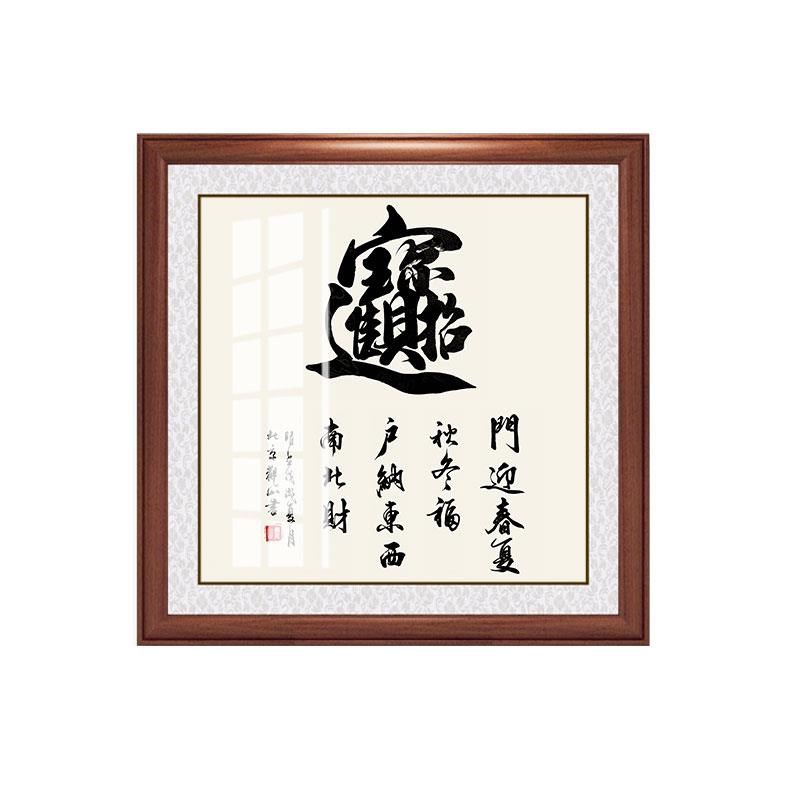 招財進寶
門迎春夏
秋冬福
戶納東西
南北財